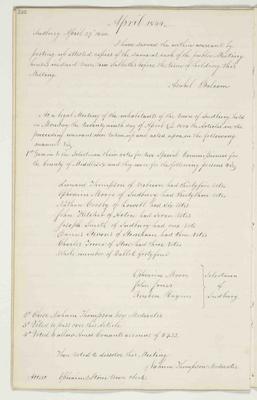 April 1844.
Sudbury April 27th 1844.
I have warned the within warrant by
posting up attested copies of the same at each of the public Meeting
houses in said Town two Sabbaths before the time of holding this
Meeting.
Asahel Balcom
At a legal Meeting of the inhabitants of the Town of Sudbury held
on Monday the twenty ninth day of April the Articles in the
preceding warrant were taken up and acted upon in the following
manner Viz
1st Gave in to the Selectmen their votes for two Special Commissioners for
the County of Middlesex and they were for the following persons Viz
Leonard Thompson of Woburn had thirty four votes
Ephraim Moore of Sudbury had thirty four votes
Nathan Crosby of Lowell had six votes
John Fletcher of Acton had Seven votes
Joseph Smith of Sudbury had one vote
Daniel Stevens of Stoneham had three votes
Charles Tower of Stow had three votes
Whole number of Ballots forty four
Ephraim Moore
John Jones
Reuben Haynes
Selectmen
of
Sudbury
2d Chose Nahum Thompson Moderator
3d Voted to pass over this Article.
4th Voted to allow account of
Then voted to dissolve this Meeting
Nahum Thompson Moderator
Attest Ephraim Stone Town clerk